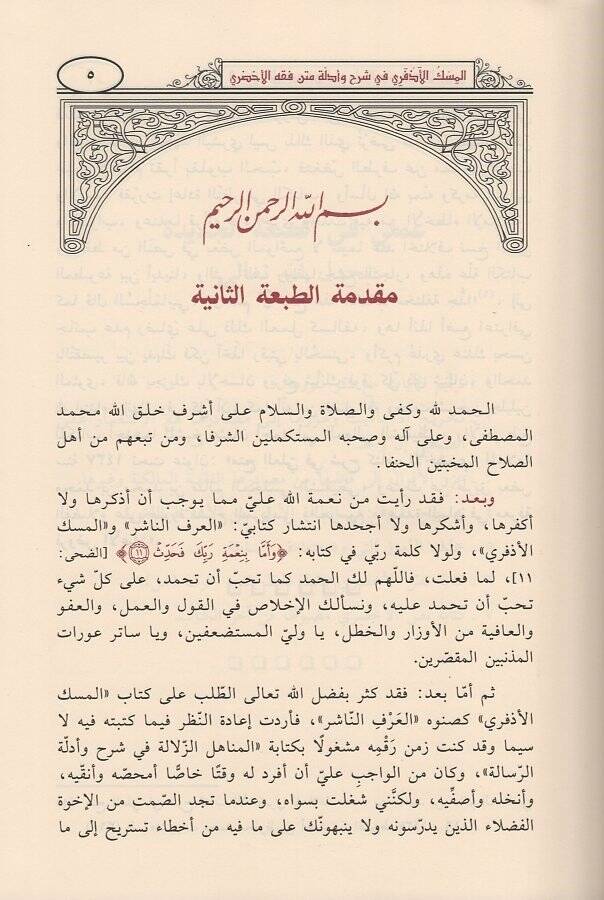 المسك الأذفري في شرح وأدلة متن فقه الأخضري
٥
بسم الله الرحمن الرحيم
مقدمة الطبعة الثانية
الحمد لله وكفى والصلاة والسلام على أشرف خلق الله محمد
المصطفى، وعلى آله وصحبه المستكملين الشرفا، ومن تبعهم من أهل
الصلاح المخبتين الحنفا.
وبعد: فقد رأيت من نعمة الله عليّ مما يوجب أن أذكرها ولا
أكفرها، وأشكرها ولا أجحدها انتشار كتابيّ: «العرف الناشر» و«المسك
الأذفري»، ولولا كلمة ربّي في كتابه: ﴿وَأَمَّا بِنِعْمَةِ رَبِّكَ فَحَدِّثْ ۝١١﴾ [الضحى:
١١]، لما فعلت، فاللّهم لك الحمد كما تحبّ أن تحمد، على كلّ شيء
تحبّ أن تحمد عليه، ونسألك الإخلاص في القول والعمل، والعفو
والعافية من الأوزار والخطل، يا وليّ المستضعفين، ويا ساتر عورات
المذنبين المقصّرين.
ثم أمّا بعد: فقد كثر بفضل الله تعالى الطّلب على كتاب «المسك
الأذفري» كصنوه «العَرْفِ النّاشر»، فأردت إعادة النّظر فيما كتبته فيه لا
سيما وقد كنت زمن رَقْمِه مشغولًا بكتابة «المناهل الزّلالة في شرح وأدلّة
الرّسالة»، وكان من الواجبِ عليّ أن أفرد له وقتًا خاصًّا أمحصّه وأنقّيه،
وأنخله وأصفّيه، ولكنّني شغلت بسواه، وعندما تجد الصّمت من الإخوة
الفضلاء الذين يدرّسونه ولا ينبهونك على ما فيه من أخطاء تستريح إلى ما